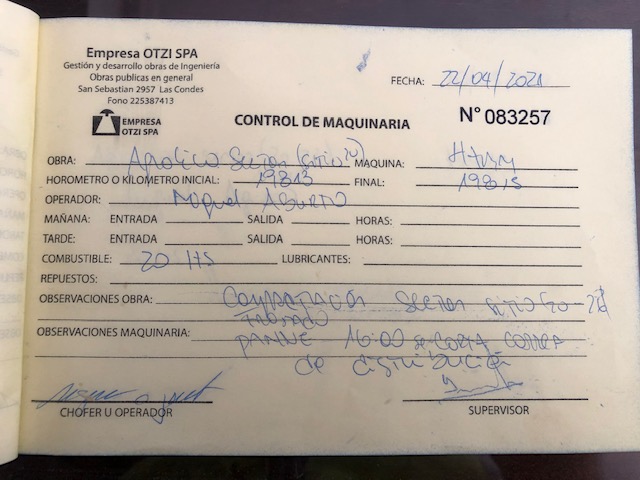 Empresa OTZI SPA
Gestión y desarrollo obras de Ingeniería
Obras publicas en general
San Sebastian 2957 Las Condes
Fono 225387413
FECHA: 22/04/2021
EMPRESA
OTZI SPA
CONTROL DE MAQUINARIA
N° 083257
OBRA: MAQUINA:
HOROMETRO O KILOMETRO INICIAL: 19813 FINAL: 19815
OPERADOR: Miguel Aburto
MAÑANA: ENTRADA SALIDA HORAS:
TARDE: ENTRADA SALIDA HORAS:
COMBUSTIBLE: 20 LTS LUBRICANTES:
REPUESTOS:
OBSERVACIONES OBRA: Compactación
OBSERVACIONES MAQUINARIA: 16:00 se corta correa
de
CHOFER U OPERADOR
SUPERVISOR